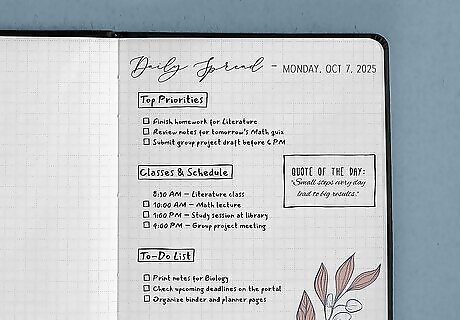 Daily Spread - MONDAY, OCT 7, 2025
Top Priorities
Finish homework for Literature
Review notes for tomorrow's Math quiz
Submit group project draft before 6 PM
Classes & Schedule
8:30 AM – Literature class
10:00 AM – Math lecture
1:00 PM – Study session at library
4:00 PM – Group project meeting
QUOTE OF THE DAY:
"Small steps every day
lead to big results."
To-Do List
Print notes for Biology
Check upcoming deadlines on the portal
Organize binder and planner pages